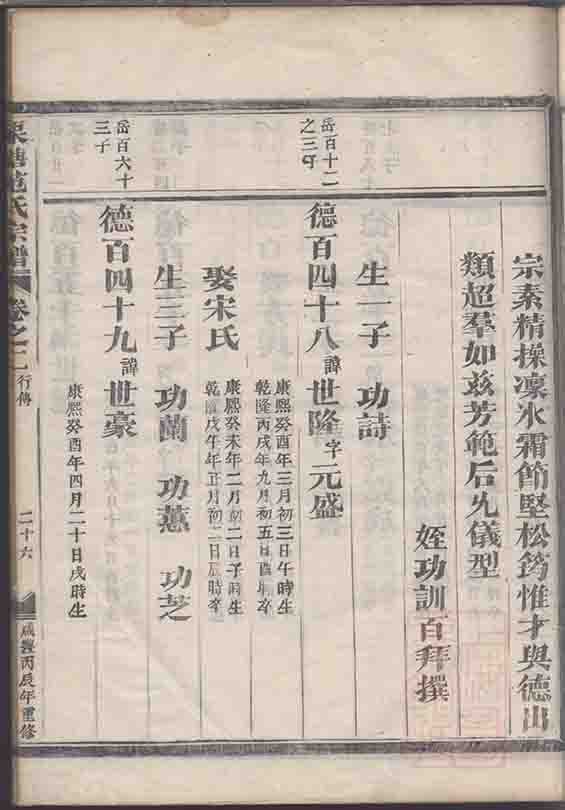 宗素精操凛氷霜節堅松筠惟才與德出
類超羣如兹芳範后先儀型
姪功訓百拜撰
生一子 功詩
岳百十二
之三子
德百四十八諱世隆字元盛
康熙癸酉年三月初三日午時生
乾隆丙戌年九月初五日酉時卒
娶宋氏
康熙癸未年二月初二日子時生
乾隆戊午年正月初二日辰時卒
生三子 功蘭 功蕙 功芝
岳百六十
三子
德百四十九諱世豪
康熙癸酉年四月二十日戌時生
范氏宗譜 卷之二 行傳 二十六 咸豐丙辰年重修